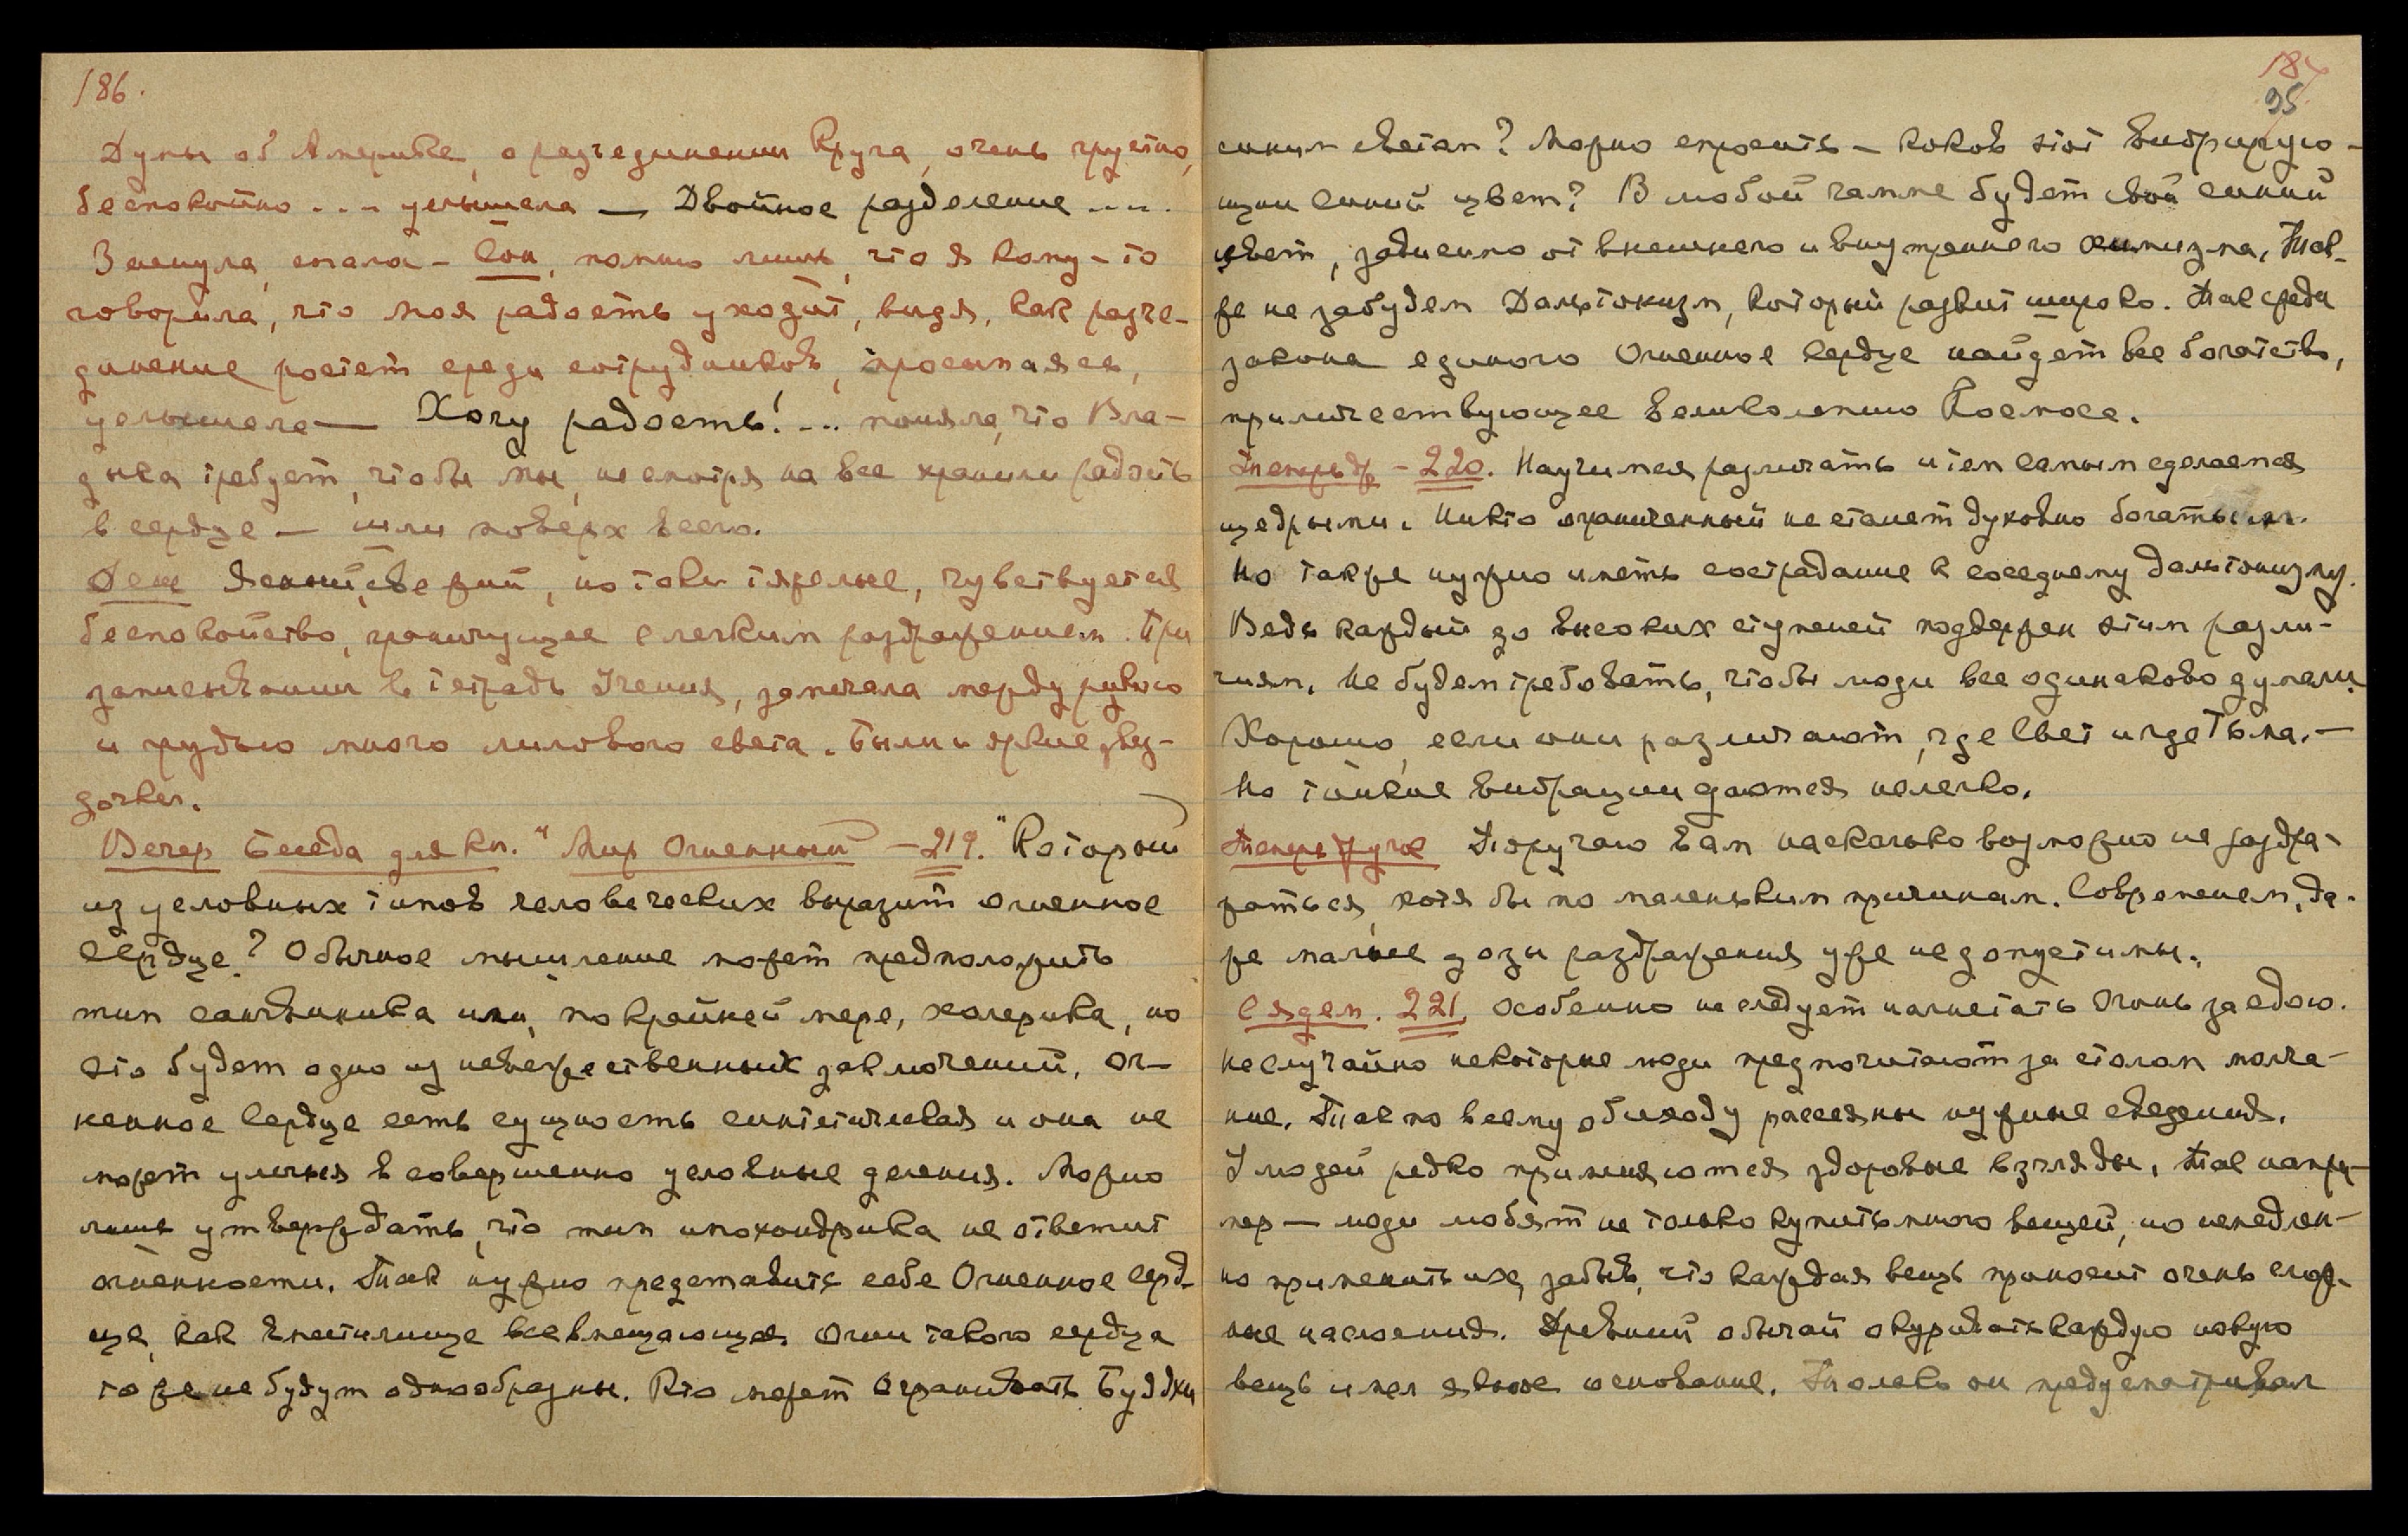 186.
Думы об Америке, о разъединении Круга, очень грустно,
беспокойно... услышала — Двойное разделение....
Заснула, спала - Сон, помню лишь, что я кому-то
говорила, что моя радость уходит, видя, как разъе-
динение растет среди сотрудников, просыпаясь,
услышала — Хочу радость!... поняла, что Вла-
дыка требует, чтобы мы, несмотря на все хранили радость
в сердце — или поверх всего.
День Ясный, свежий, но токи тяжелые, чувствуется
беспокойство, граничущее с легким раздражением. При
записывании в тетрадь Учения, замечала между рукою
и грудью много лилового света. Были и яркие звез-
дочки.
Вечер Беседа для кн. "Мир Огненный" - 219. "Который
из условных типов человеческих выразит огненное
Сердце? Обычное мышление может предположить
тип сангвиника или, по крайней мере, холерика, но
это будет одно из невежественных заключений. Ог-
ненное Сердце есть сущность синтетическая и она не
может улечься в совершенно условные деления. Можно
лишь утверждать, что тип ипохондрика не ответит
огненности. Так нужно представить себе Огненное Серд-
це, как вместилище всевмещающее. Огни такого сердца
тоже не будут однообразны. Кто может ограничивать Буддхи
187
95
синим светом? Можно спросить - каков этот вибрирую-
щий синий цвет? В любой гамме будет свой синий
цвет, зависимо от внешнего и внутреннего химизма. Так-
же не забудем Дальтонизм, который развит широко. Так среди
закона единого Огненное Сердце найдет все богатство,
приличествующее великолепию Космоса.
Тетрадь - 220. Научимся различать и тем самым сделаемся
щедрыми. Никто ограниченный не станет духовно богатым.
Но также нужно иметь сострадание к соседнему дальтонизму.
Ведь каждый до высоких ступеней подвержен этим разли-
чиям. Не будем требовать, чтобы люди все одинаково думали.
Хорошо, если они различают, где Свет и где Тьма. —
Но тонкие вибрации даются нелегко.
Тетрадь другое Поручаю вам насколько возможно не раздра-
жаться, хотя бы по маленьким причинам. Со временем, да-
же малые дозы раздражения уже недопустимы.
Сядем. 221. Особенно не следует нагнетать Огонь за едою.
Не случайно некоторые люди предпочитают за столом молча-
ние. Так по всему обиходу рассеяны нужные сведения.
У людей редко применяются здоровые взгляды. Так напри-
мер — люди любят не только купить много вещей, но немедлен-
но применить их, забыв, что каждая вещь приносит очень слож-
ные наслоения. Древний обычай окуривать каждую новую
вещь имел явное основание. Только он предусматривал